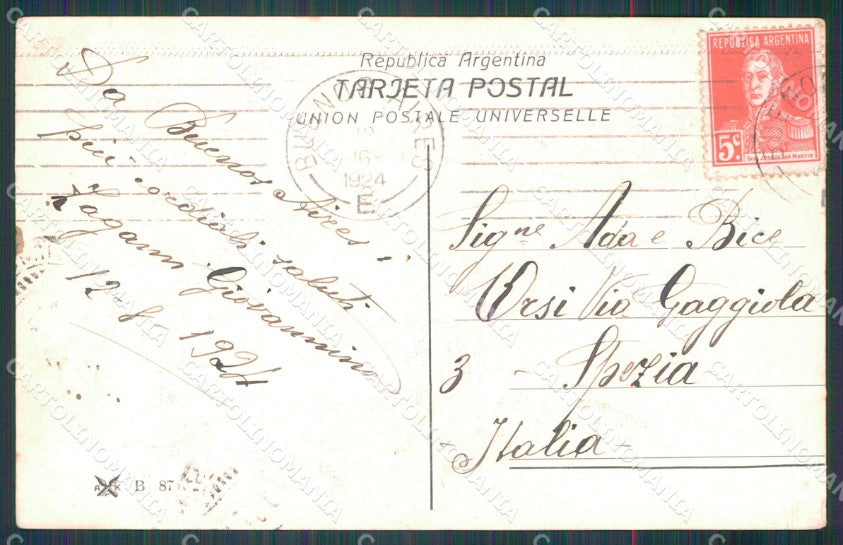 Republica Argentina
TARJETA POSTAL
UNION POSTALE UNIVERSELLE
REPUBLICA ARGENTINA
5c
BUENOS AIRES
12
16-
1924
E
Da Buenos Aires i
più cordiali saluti
Giovannino
12-8 1924
Signe Ada e Bice
Orsi Via Gaggiola
3 - Spezia
Italia-
B 87
CARTOLINOMANIA